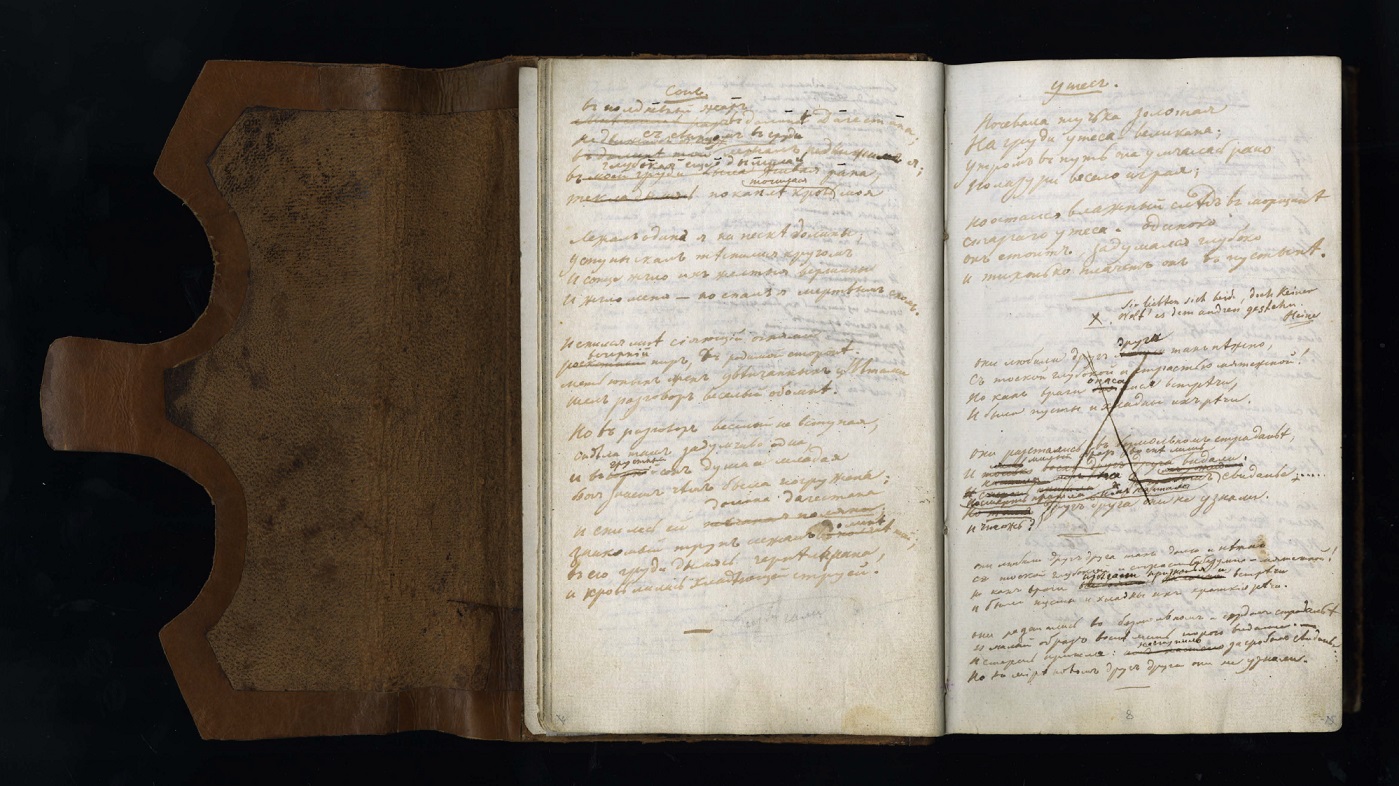 Сонъ.
Въ полдневный жаръ
въ долинѣ Дагестана,
Съ свинцомъ въ груди
лежалъ недвижимъ я;
Глубокая еще дымилась рана,
По каплѣ кровь
точилася
моя
Лежалъ одинъ я на пескѣ долины;
Уступы скалъ тѣснилися кругомъ
И солнце жгло ихъ желтыя вершины
И жгло меня — но спалъ я мертвымъ сномъ.
И снился мнѣ сіяющій огнями
вечерній
пиръ, въ родимой сторонѣ.
Межъ юныхъ женъ увѣнчанныхъ цвѣтами
Шелъ разговоръ веселый обо мнѣ.
Но въ разговоръ веселый не вступая,
Сидѣла тамъ задумчиво одна,
грустный
И въ сонъ душа ея младая
Богъ знаетъ чѣмъ была погружена;
долина Дагестана
И снилась ей
Знакомый трупъ лежалъ въ долинѣ той;
Въ его груди дымясь чернѣла рана,
И кровь лилась хладѣющей струей.
Утесъ.
Ночевала тучка золотая
На груди утеса великана;
Утромъ въ путь она умчалась рано
По лазури весело играя;
Но остался влажный слѣдъ въ морщинѣ
Стараго утеса. Одиноко
Онъ стоитъ, задумался глубоко
И тихонько плачетъ онъ въ пустынѣ.
Sie liebten sich beide, doch keiner
Wollt' es dem andern gestehn.
Heine
X.
друга
Они любили другъ такъ нѣжно,
Съ тоской глубокой и страстью мятежной!
Но какъ враги опаса лися встрѣчи,
И были пусты и хладны ихъ рѣчи.
Они разстались въ безмолвномъ страданьѣ,
И милый образъ во снѣ лишь
видали.
свиданье.....
другъ друга они не узнали.
И чтожъ?
Они любили другъ друга такъ долго и нѣжно
Съ тоской глубокой и страстью безумно-мятежной!
Но какъ враги избѣгали признанья и встрѣчи
И были пусты и хладны ихъ краткія рѣчи.
Они разстались въ безмолвномъ и гордомъ страданьѣ
И милый образъ во снѣ лишь порою видали.
И смерть пришла: наступило за гробомъ свиданье
Но въ мірѣ новомъ другъ друга они не узнали.
8